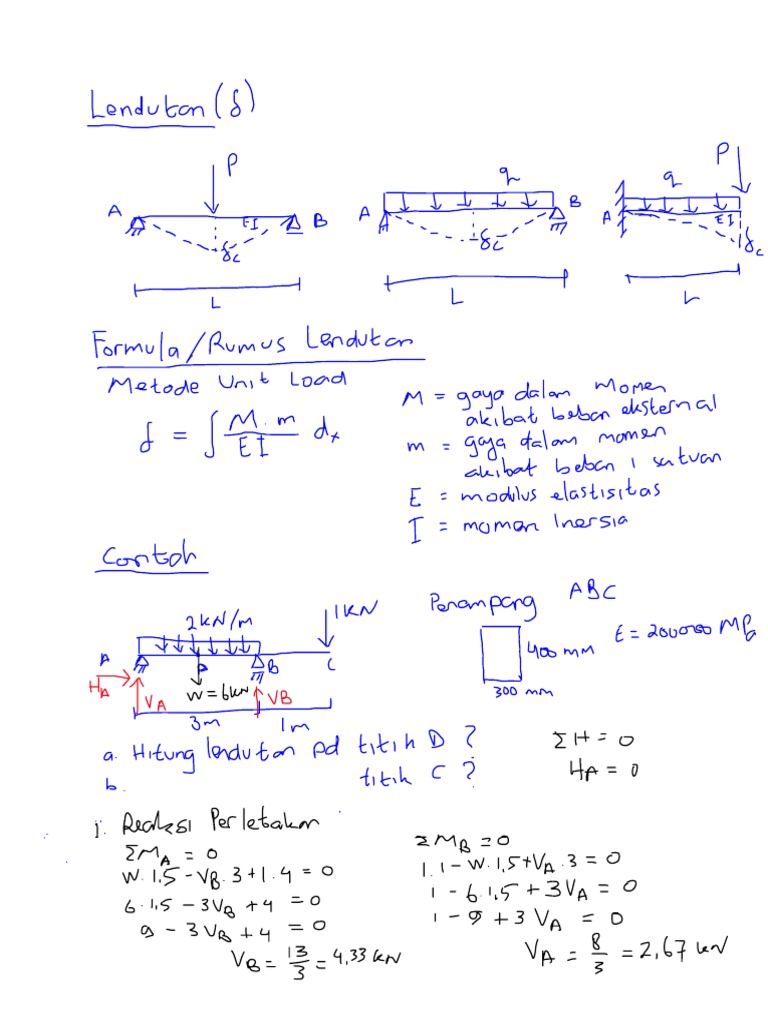 Lendutan (δ)
P
A
EI
B
δc
L
q
A
B
δc
L
P
q
A
EI
δc
L
Formula/Rumus Lendutan
Metode Unit Load
δ = ∫ M.m / EI dx
M = gaya dalam momen
akibat beban eksternal
m = gaya dalam momen
akibat beban 1 satuan
E = modulus elastisitas
I = momen Inersia
Contoh
2 kN/m
1 KN
A
D
B
C
HA
VA
W = 6 kN
VB
3m
1m
Penampang ABC
400 mm
E = 200000 MPa
300 mm
a. Hitung lendutan pd titik D ?
b. titik C ?
ΣH = 0
HA = 0
1. Reaksi Perletakan
ΣMA = 0
W. 1,5 - VB. 3 + 1. 4 = 0
6. 1,5 - 3VB + 4 = 0
9 - 3VB + 4 = 0
VB = 13/3 = 4,33 kN
ΣMB = 0
1. 1 - W. 1,5 + VA. 3 = 0
1 - 6. 1,5 + 3VA = 0
1 - 9 + 3 VA = 0
VA = 8/3 = 2,67 kN